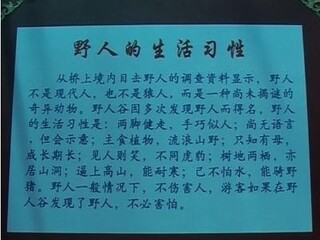 野人的生活习性
从桥上境内目去野人的调查资料显示，野人
不是现代人，也不是猿人，而是一种尚未揭谜的
奇异动物。野人谷因多次发现野人而得名，野人
的生活习性是：两脚健走，手巧似人；尚无语言
，但会示意；主食植物，流浪山野；只知有母，
成长期长；见人则笑，不同虎豹；树地两栖，亦
居山洞；逼上高山，能耐寒；己不怕水，能骑野
猪。野人一般情况下，不伤害人，游客如果在野
人谷发现了野人，不必害怕。